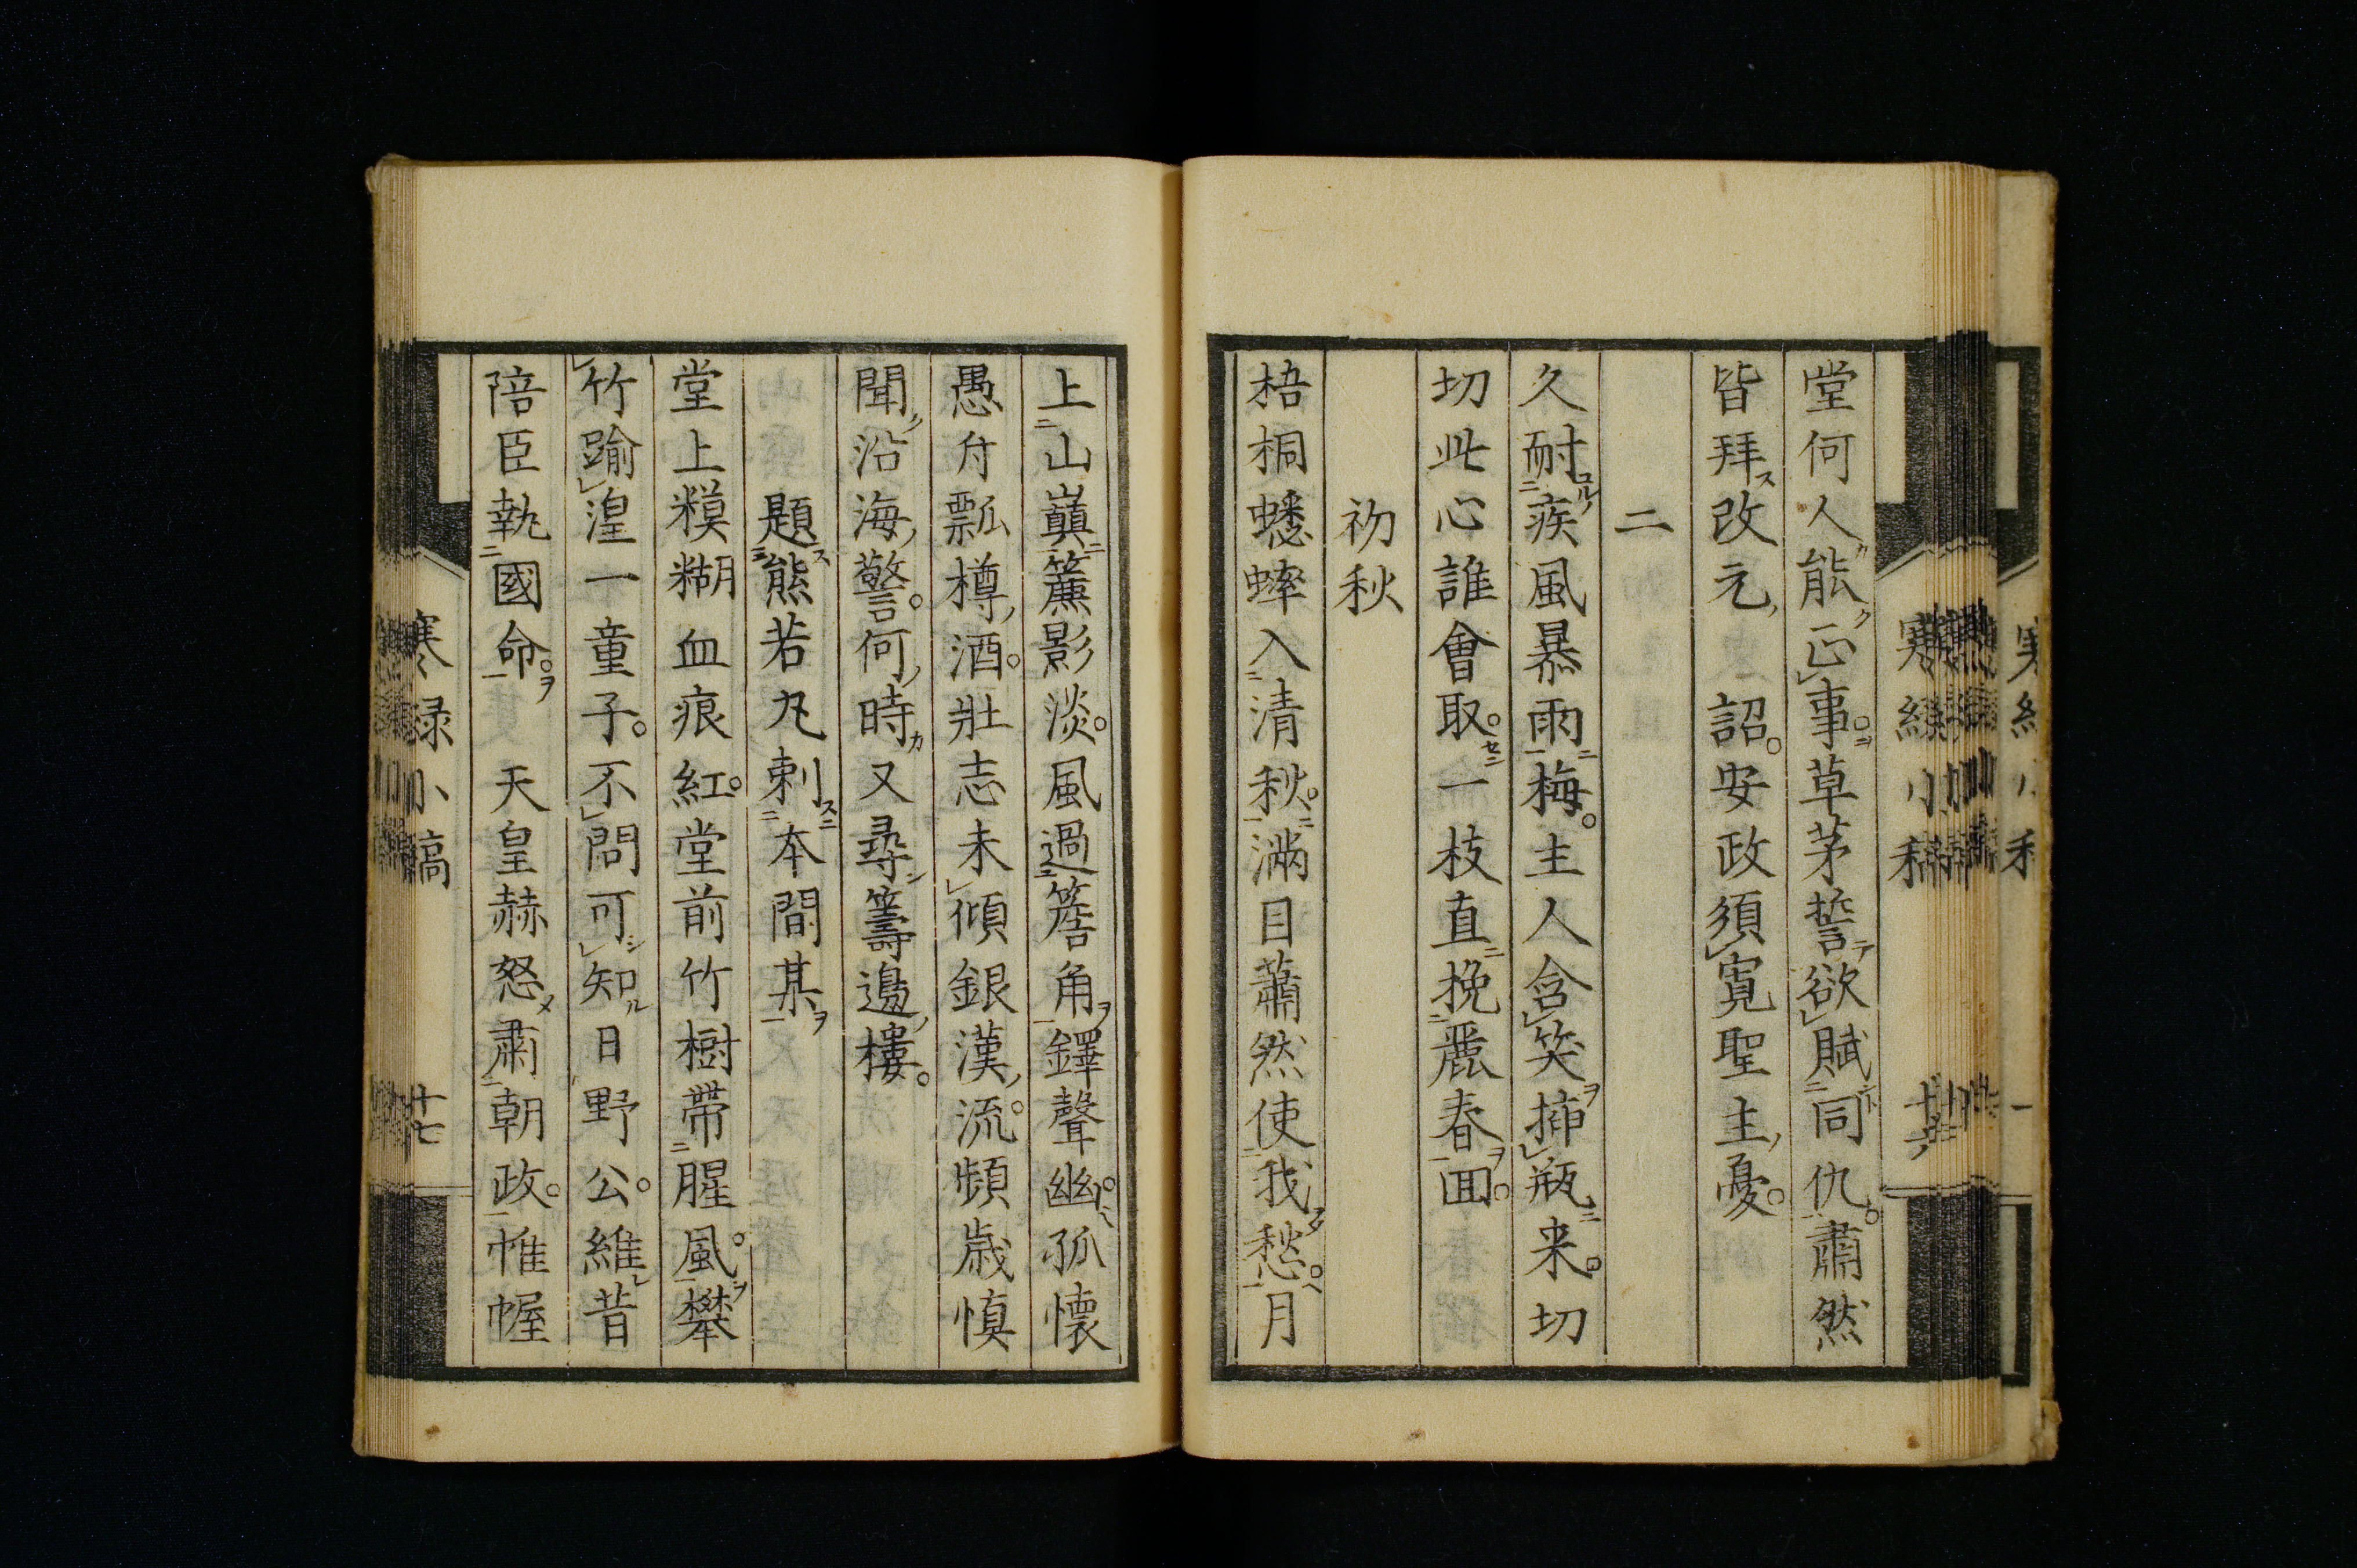 堂何人能正事。草茅誓欲賦同仇。肅然
皆拜改元詔。安政須寛聖主憂。
二
久耐疾風暴雨梅。主人含笑揷瓶来。切
切此心誰會取。一枝直挽麗春囬。
初秋
梧桐蟋蟀入清秋。滿目蕭然使我愁。月
寒緑小稿
十六
上山巓簾影淡。風過簷角鐸聲幽。孤懷
愚付瓢樽酒。壯志未傾銀漢流。頻歳慎
聞沿海警。何時又尋籌邊樓。
題熊若丸刺本間某
堂上糢糊血痕紅。堂前竹樹帶腥風。攀
竹踰湟一童子。不問可知日野公。維昔
陪臣執國命。天皇赫怒肅朝政。帷幄
寒緑小稿
十七